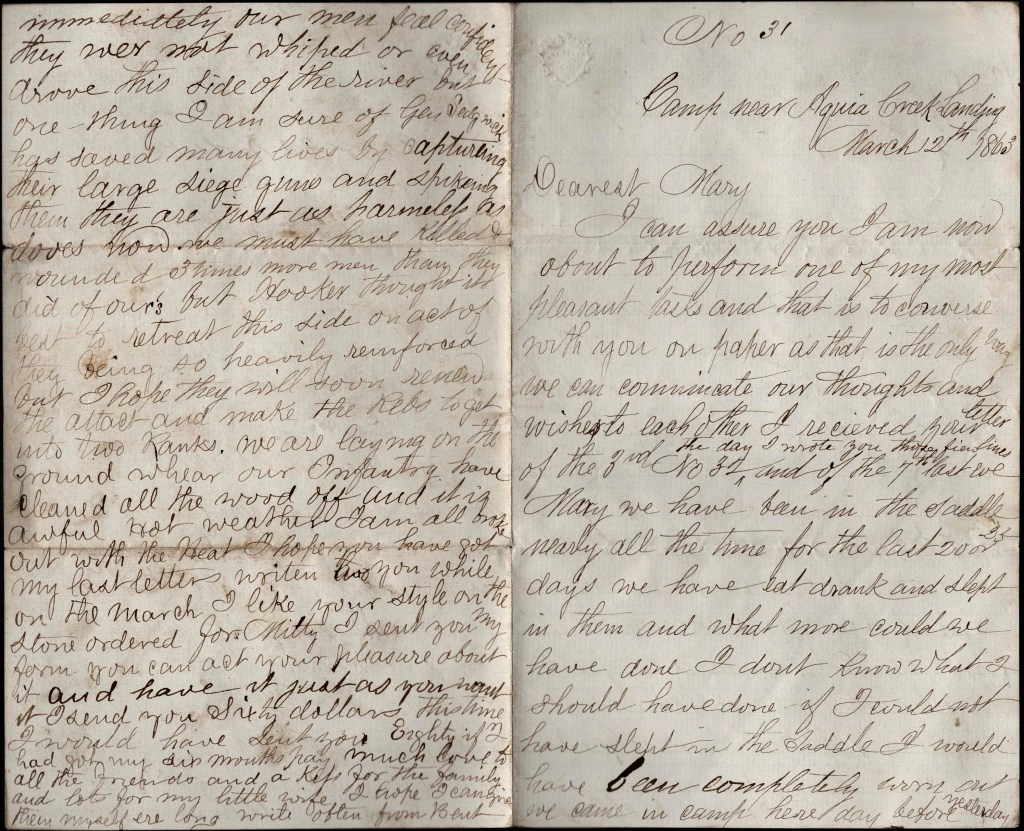 immediately our men feal confident
they wer not whiped or even
drove this side of the river but
one thing I am sure of Gen Sedgwick
has saved many lives by capturing
their large siege guns and spiking
them they are just as harmless as
doves now we must have killed &
wounded 3 times more men than they
did of our's but Hooker thought it
best to retreat this side on act of
they being so heavily reinforced
but I hope they will soon renew
the attact and make the Rebs to get
into two Ranks. we are laying on the
ground whear our Infantry have
cleaned all the wood off and it is
awful hot weather I am all broke
out with the Heat I hope you have got
my last letters writen two you while
on the march I like your style on the
stone ordered for Mitty I sent you my
form you can act your pleasure about
it and have it just as you want
it I send you Sixty dollars this time
I would have sent you Eighty if I
had got my six months pay much love to
all the Friends and a Kiss for the family
and lots for my little wife I hope I can give
them myself ere long write often from Bent
No 31
Camp near Aquia Creek Landing
March 12th 1863
Dearest Mary
I can assure you I am now
about to perform one of my most
pleasant tasks and that is to converse
with you on paper as that is the only way
we can comunicate our thoughts and
wishes to each other I recieved your letter
of the 3rd No 32 the day I wrote you those few lines and of the 7th last eve
Mary we have ben in the saddle
nearly all the time for the last 20 or 25
days we have eat drank and slept
in them and what more could we
have done I dont know what I
should have done if I could not
have slept in the saddle I would
have been completely worn out
we came in camp here day before yesterday